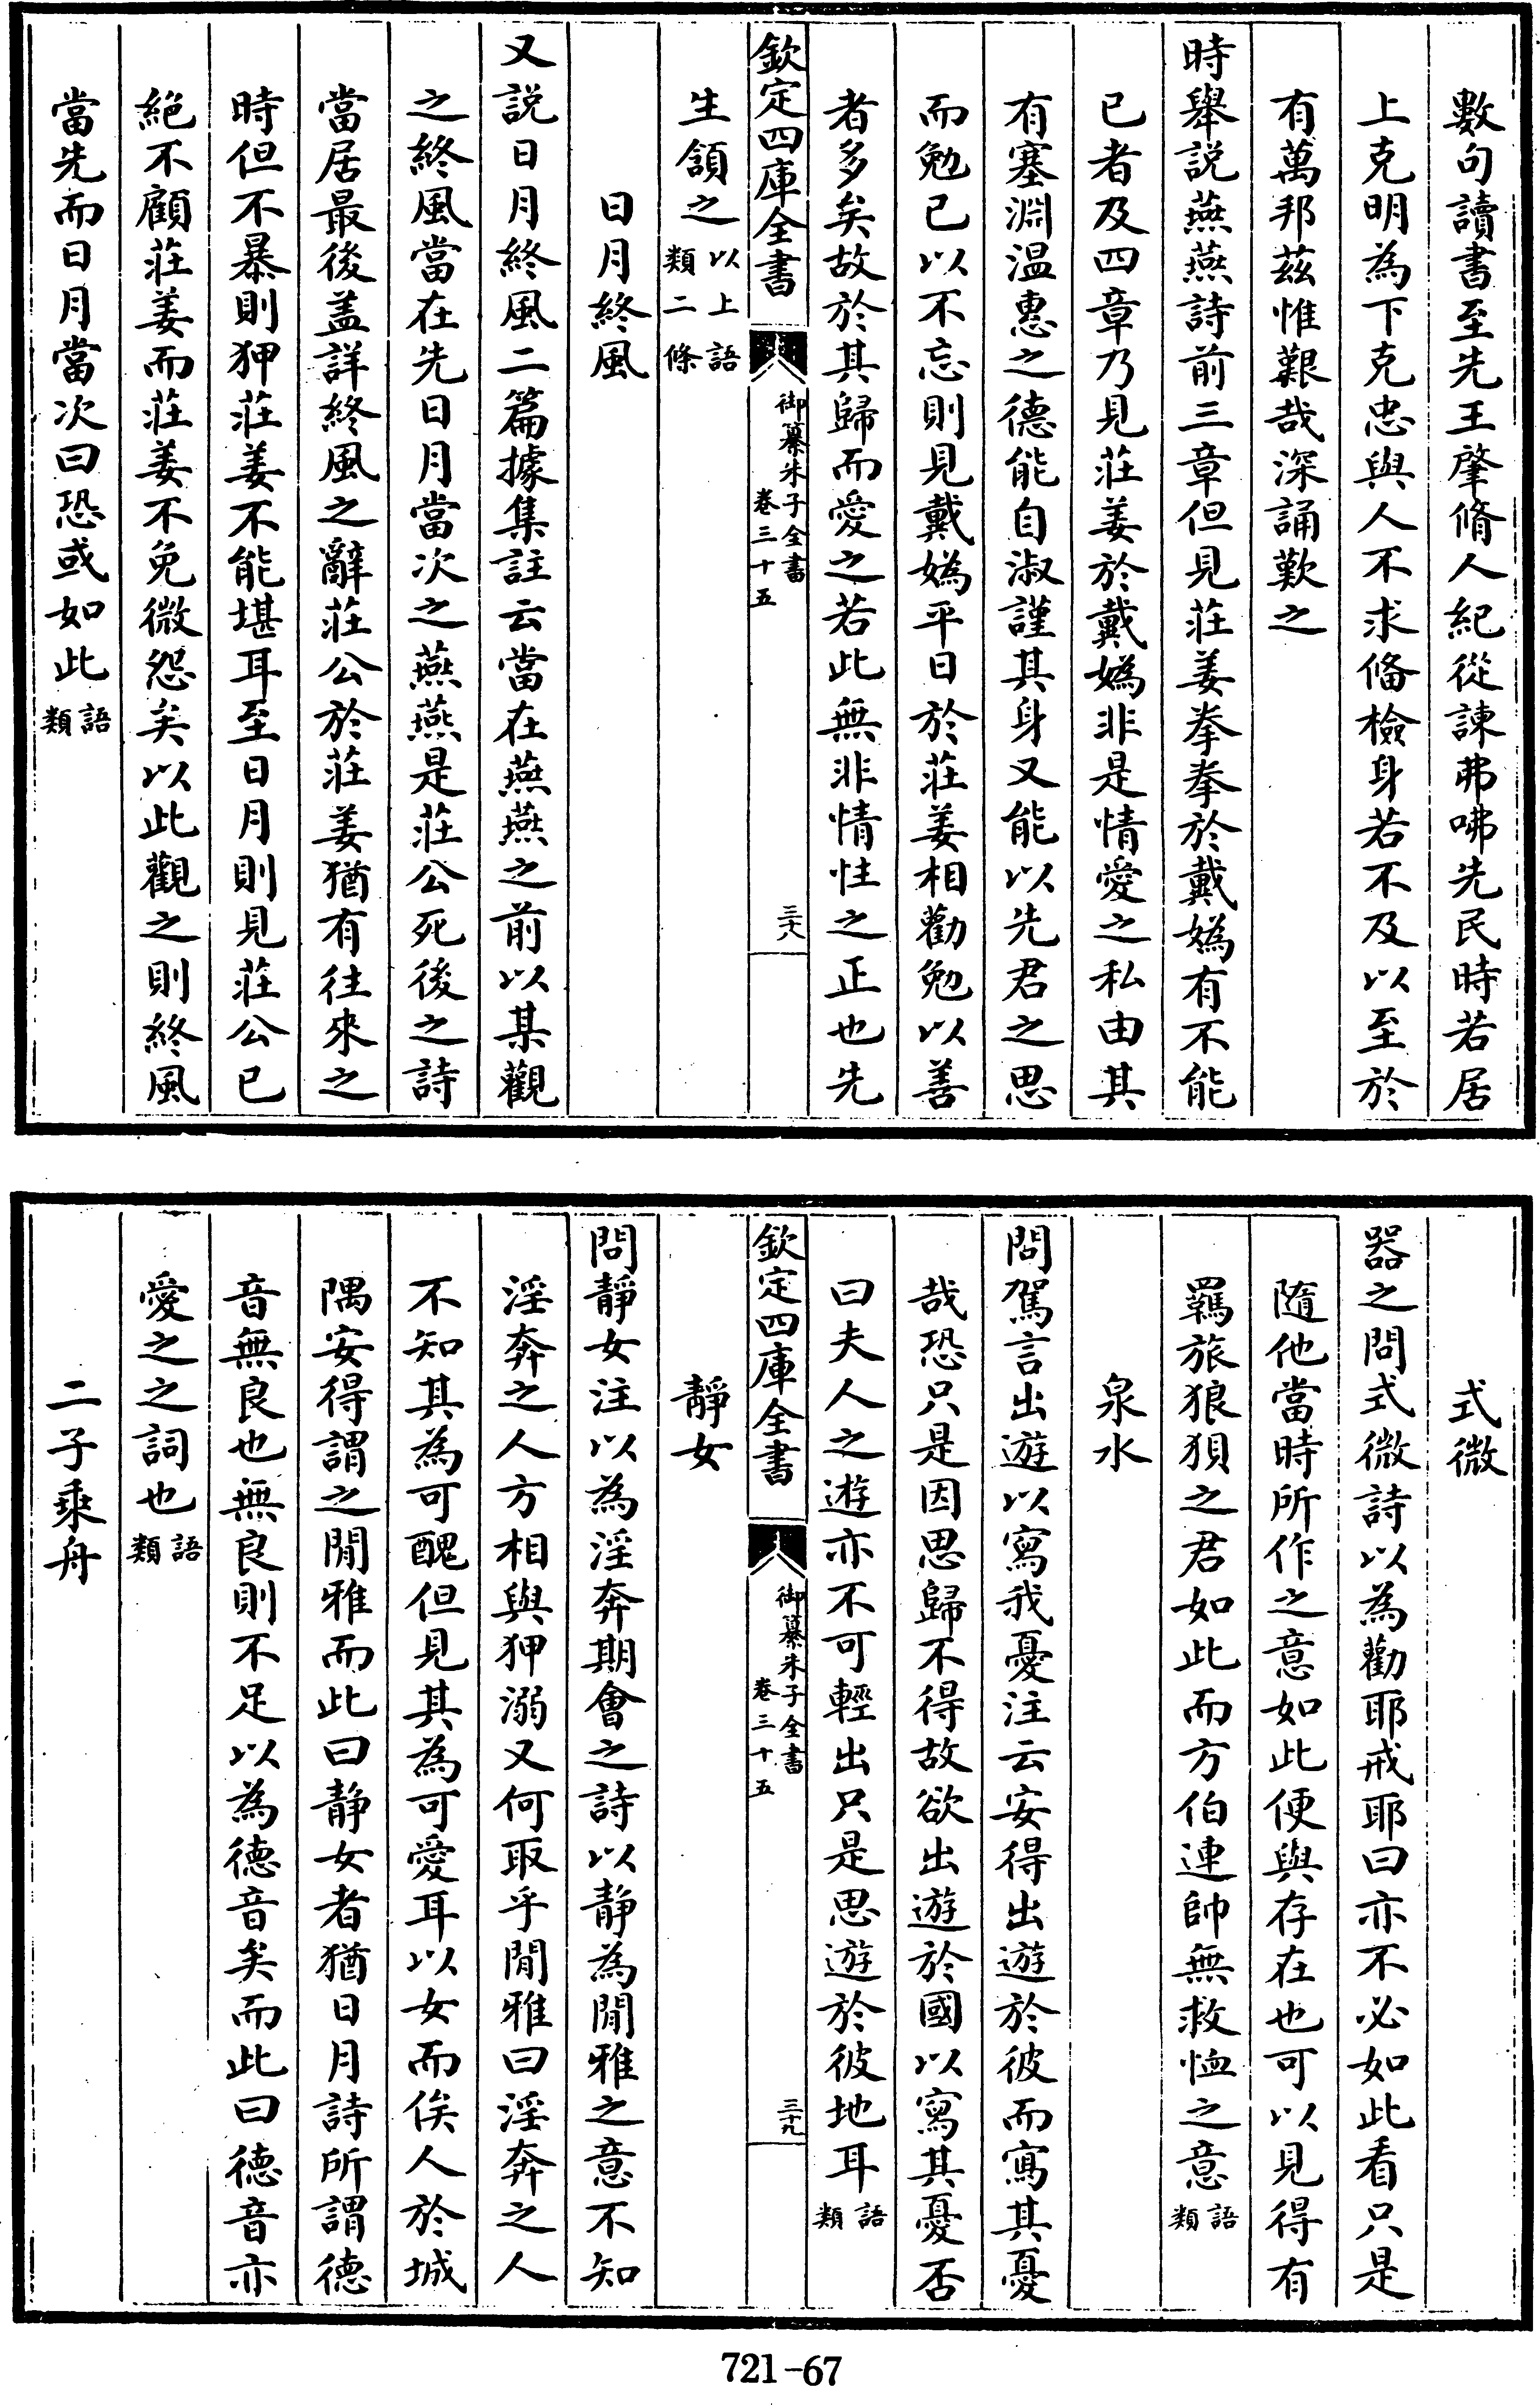 數句讀書至先王肇脩人紀從諫弗咈先民時若居
上克明為下克忠與人不求俻檢身若不及以至於
有萬邦茲惟艱哉深誦歎之
時舉説燕燕詩前三章但見莊姜拳拳於戴媯有不能
已者及四章乃見莊姜於戴媯非是情愛之私由其
有塞淵温惠之德能自淑謹其身又能以先君之思
而勉已以不忘則見戴媯平日於莊姜相勸勉以善
者多矣故於其歸而愛之若此無非情性之正也先
欽定四庫全書
御纂朱子全書
卷三十五
三十八
生頷之以上語類二條
日月終風
又説日月終風二篇據集註云當在燕燕之前以某觀
之終風當在先日月當次之燕燕是莊公死後之詩
當居最後盖詳終風之辭莊公於莊姜猶有往來之
時但不暴則狎莊姜不能堪耳至日月則見莊公已
絕不顧莊姜而莊姜不免微怨矣以此觀之則終風
當先而日月當次曰恐或如此語類
式微
器之問式微詩以為勸耶戒耶曰亦不必如此看只是
隨他當時所作之意如此便與存在也可以見得有
羈旅狼狽之君如此而方伯連帥無救恤之意語類
泉水
問駕言出遊以寫我憂注云安得出遊於彼而寫其憂
哉恐只是因思歸不得故欲出遊於國以寫其憂否
曰夫人之遊亦不可輕出只是思遊於彼地耳語類
欽定四庫全書
御纂朱子全書
卷三十五
三十九
靜女
問靜女注以為淫奔期會之詩以靜為閒雅之意不知
淫奔之人方相與狎溺又何取乎閒雅曰淫奔之人
不知其為可醜但見其為可愛耳以女而俟人於城
隅安得謂之閒雅而此曰靜女者猶日月詩所謂德
音無良也無良則不足以為德音矣而此曰德音亦
愛之之詞也語類
二子乘舟
721-67